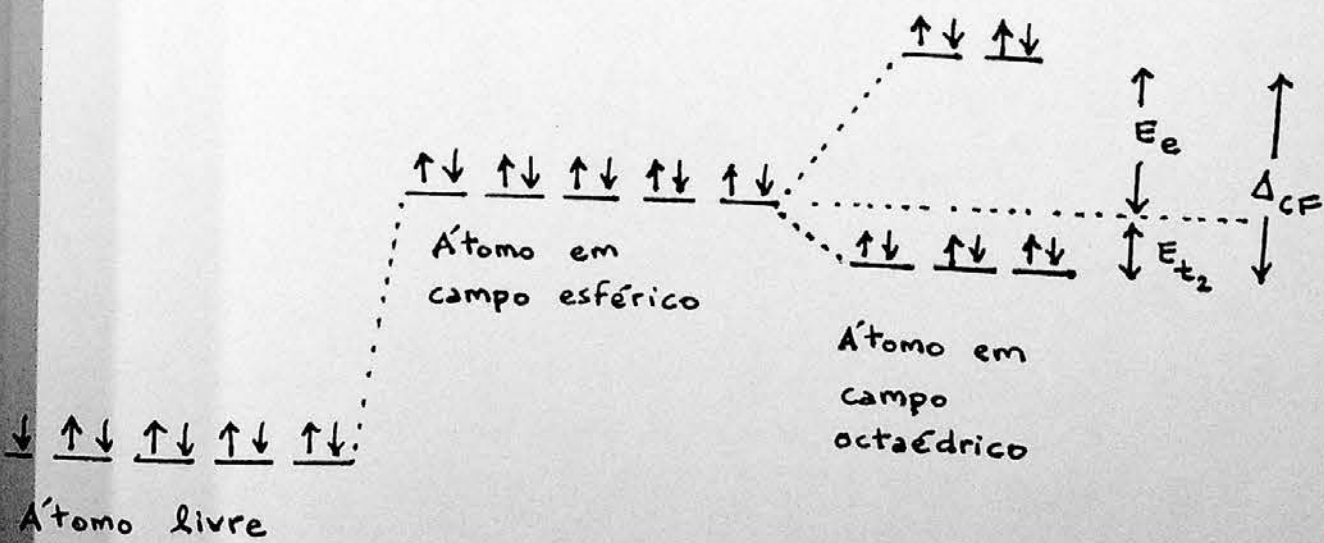 ↑↓ ↑↓
E_e
Δ_CF
↑↓ ↑↓ ↑↓ ↑↓ ↑↓
Átomo em
campo esférico
↑↓ ↑↓ ↑↓
E_t₂
Átomo em
campo
octaédrico
↓ ↑↓ ↑↓ ↑↓ ↑↓
Átomo livre